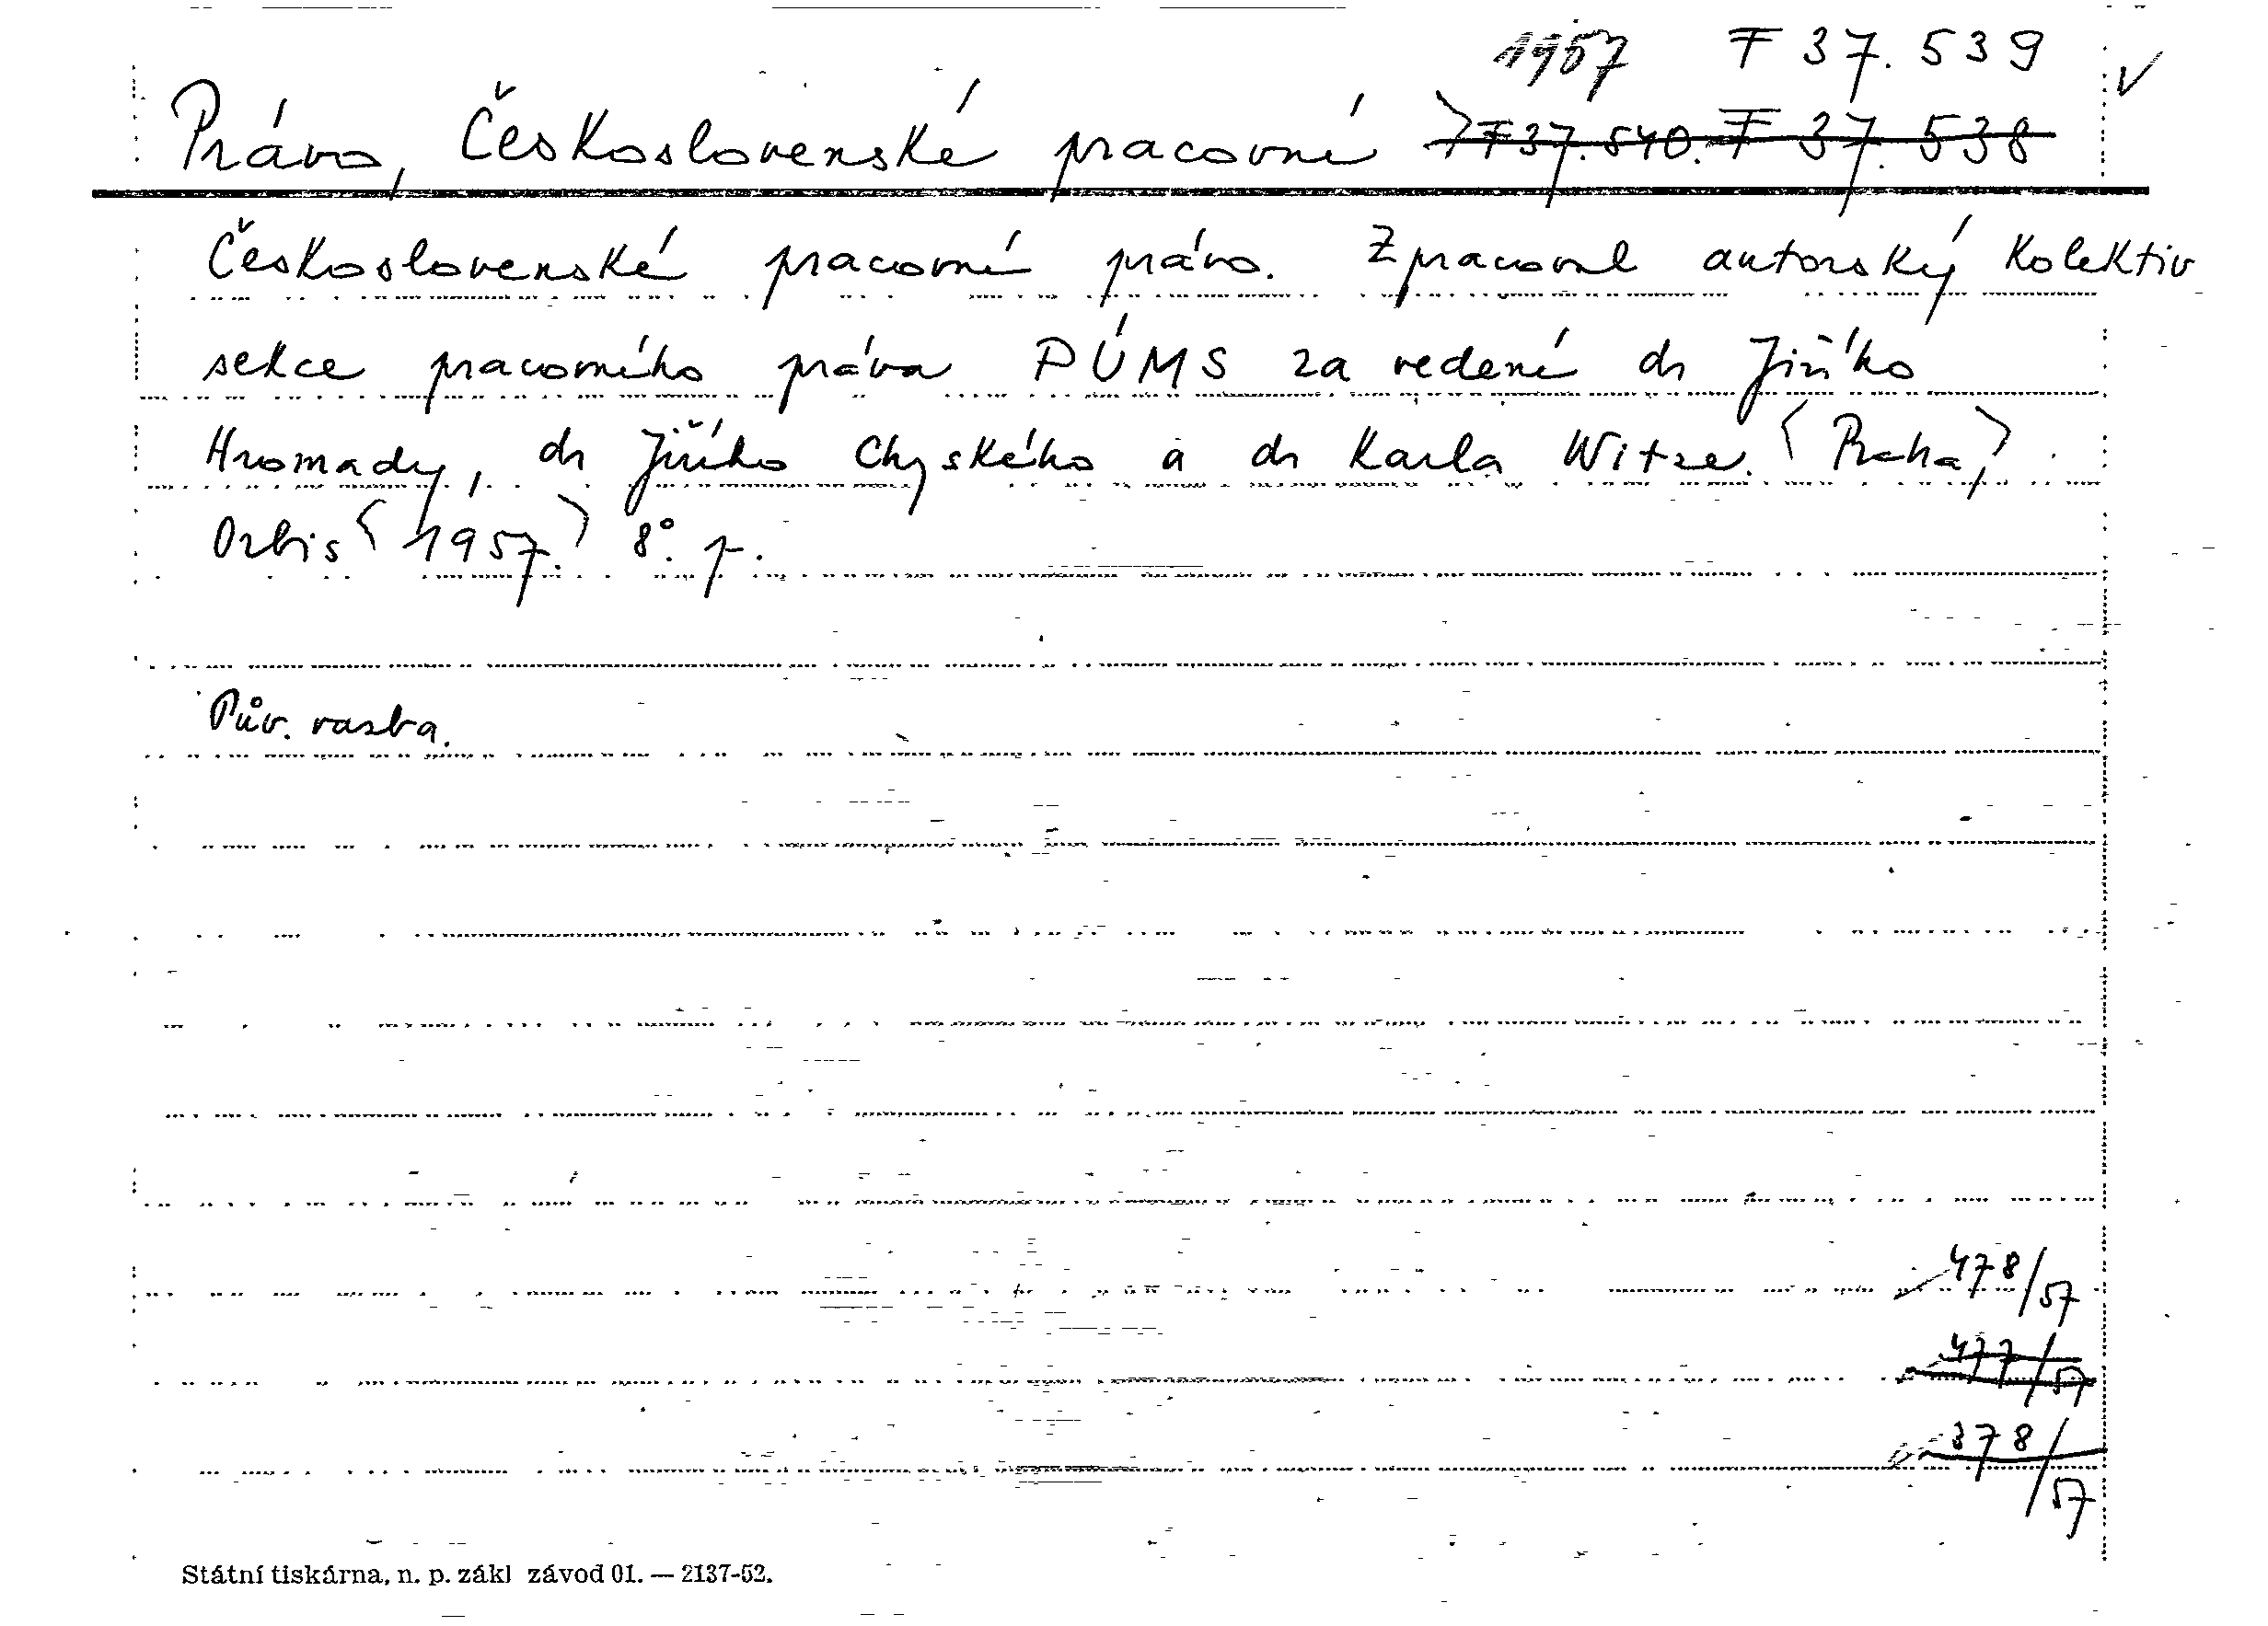 1957 F 37.539 √
Právo, Československé pracovní F 37.540. F 37.538
Československé pracovní právo. Zpracoval autorský kolektiv
sekce pracovního práva PÚMS za vedení dr Jiřího
Hromady, dr Jiřího Chyského a dr Karla Witze. ⟨Praha,⟩
Orbis ⟨1957.⟩ 8°. p.
Pův. vazba.
478/57
477/57
378/57
Státní tiskárna, n. p. zákl závod 01. — 2137-52.